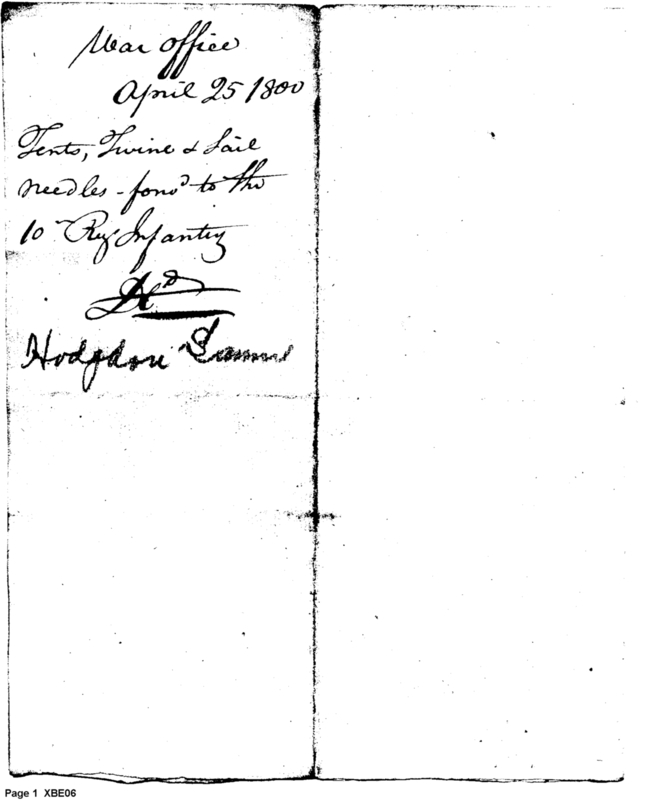 War office
April 25 1800
Tents, Twine & Sail
needles - forwd to the
10th Reg Infantry
Hodgdon Samuel
Page 1 XBE06